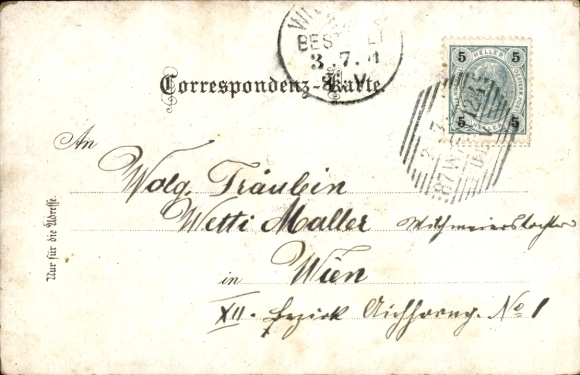 WIEN
BESTELLT
3.7.01
8.V
5 HELLER 5
5 5
Correspondenz-Karte.
An
Wolg. Fräulein
Wetti Maller
in Wien
XII. Bezirk Aichhorng. No 1
Nur für die Adresse.